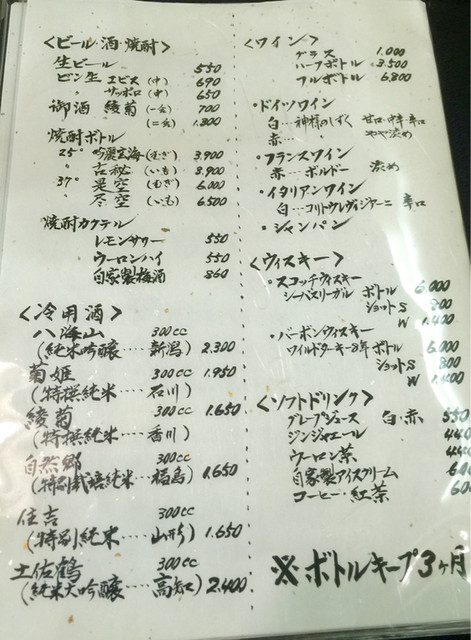 <ビール・酒・焼酎>
生ビール 550
ビン生 エビス(中) 690
〃 サッポロ(中) 650
御酒 綾菊(一合) 700
(二合) 1.300
焼酎ボトル
25° 吟麗玄海(むぎ) 3.900
〃 古秘(いも) 3.900
37° 是空(むぎ) 6.000
〃 尽空(いも) 6.500
焼酎カクテル
レモンサワー 550
ウーロンハイ 550
自家製梅酒 860
<冷用酒>
八海山 300cc
(純米吟醸‥‥新潟) 2.300
菊姫 300cc 1.950
(特撰純米‥‥石川)
綾菊 300cc 1.650
(特撰純米‥‥香川)
自然郷 300cc
(特別栽培純米‥‥福島) 1.650
住吉 300cc
(特別純米‥‥山形) 1.650
土佐鶴 300cc
(純米大吟醸‥‥高知) 2.400
<ワイン>
グラス 1.000
ハーフボトル 3.500
フルボトル 6.800
・ドイツワイン
白…神様のしずく 甘口・中辛・辛口
赤… やや渋め
・フランスワイン
赤…ボルドー 渋め
・イタリアンワイン
白…コリトウレヴィジャーニ 辛口
・シャンパン
<ウィスキー>
・スコッチウィスキー
シーバスリーガル ボトル 6.000
ショットS 800
W 1.400
・バーボンウィスキー
ワイルドターキー8年 ボトル 6.000
ショットS 800
W 1.400
<ソフトドリンク>
グレープジュース 白・赤 550
ジンジャエール 440
ウーロン茶 440
自家製アイスクリーム 60
コーヒー・紅茶 60
※ボトルキープ3ヶ月